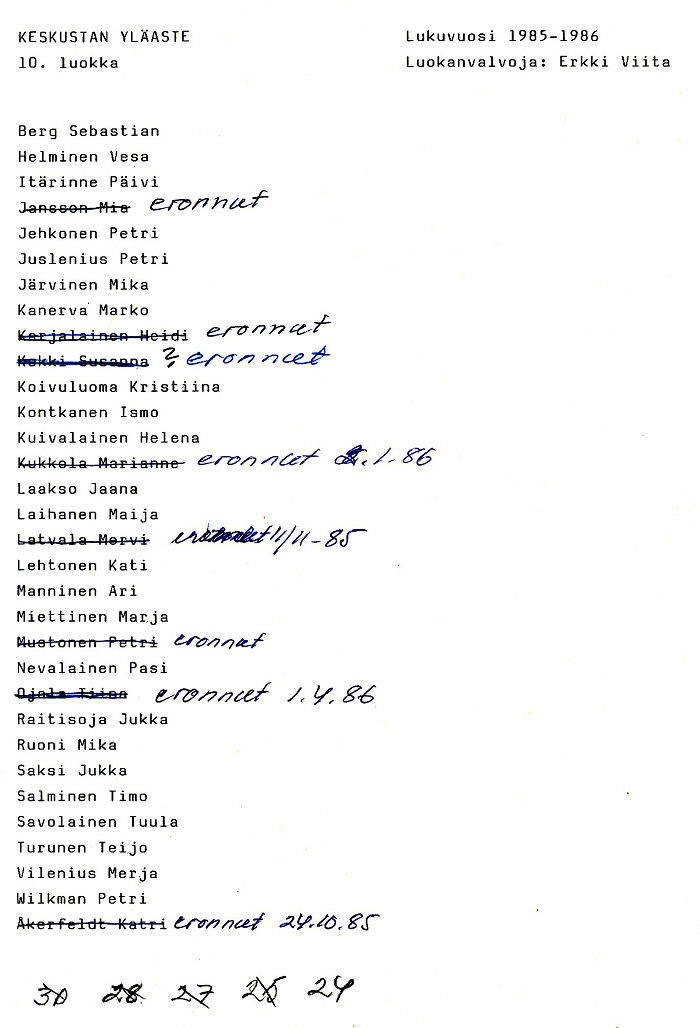 KESKUSTAN YLÄASTE Lukuvuosi 1985-1986
10. luokka Luokanvalvoja: Erkki Viita
Berg Sebastian
Helminen Vesa
Itärinne Päivi
Jansson Mia eronnut
Jehkonen Petri
Juslenius Petri
Järvinen Mika
Kanerva Marko
Karjalainen Heidi eronnut
Kekki Susanna ? eronnut
Koivuluoma Kristiina
Kontkanen Ismo
Kuivalainen Helena
Kukkola Marianne eronnut 1-86
Laakso Jaana
Laihanen Maija
Latvala Mervi 11/11-85
Lehtonen Kati
Manninen Ari
Miettinen Marja
Mustonen Petri eronnut
Nevalainen Pasi
Ojala Tiina eronnut 1.4.86
Raitisoja Jukka
Ruoni Mika
Saksi Jukka
Salminen Timo
Savolainen Tuula
Turunen Teijo
Vilenius Merja
Wilkman Petri
Åkerfeldt Katri eronnut 24.10.85
30 28 27 25 24